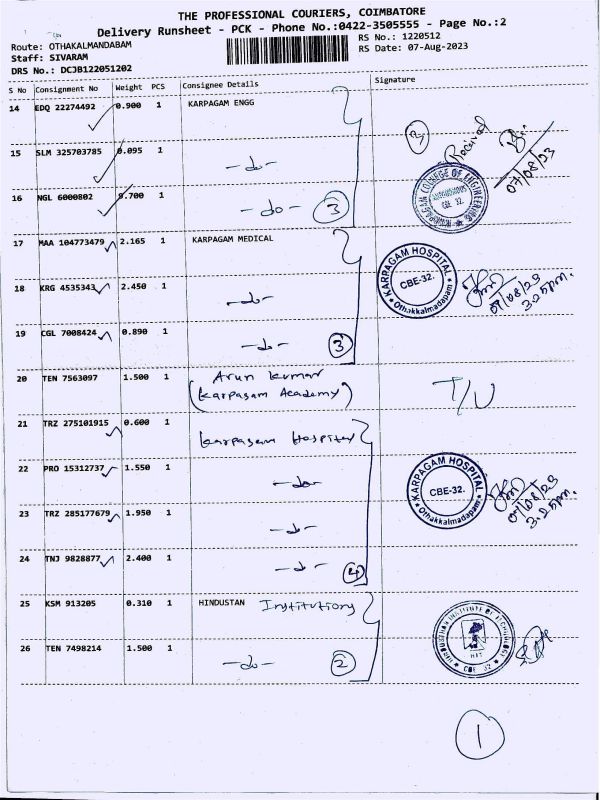 THE PROFESSIONAL COURIERS, COIMBATORE
Delivery Runsheet - PCK - Phone No.:0422-3505555 - Page No.:2
Route: OTHAKALMANDABAM
Staff: SIVARAM
DRS No.: DCJB122051202
RS No.: 1220512
RS Date: 07-Aug-2023
S No Consignment No Weight PCS Consignee Details Signature
14 EDQ 22274492 0.900 1 KARPAGAM ENGG
15 SLM 325703785 0.095 1 -do-
Received
07/08/23
16 NGL 6000802 0.700 1 -do- 3
KARPAGAM COLLEGE OF ENGINEERING
CBE 32.
17 MAA 104773479 2.165 1 KARPAGAM MEDICAL
18 KRG 4535343 2.450 1 -do-
KARPAGAM HOSPITAL
CBE-32.
Othakkalmadapam
07/08/23
3.25pm.
19 CGL 7008424 0.890 1 -do- 3
20 TEN 7563097 1.500 1 Arun Kumar
(Karpagam Academy)
T/U
21 TRZ 275101915 0.600 1 Karpagam Hospital
22 PRO 15312737 1.550 1 -do-
KARPAGAM HOSPITAL
CBE-32.
Othakkalmadapam
07/08/23
3.25pm.
23 TRZ 285177679 1.950 1 -do-
24 TNJ 9828877 2.400 1 -do- 4
25 KSM 913205 0.310 1 HINDUSTAN Institutions
26 TEN 7498214 1.500 1 -do- 2
HINDUSTHAN INSTITUTE OF TECHNOLOGY
HIT
CBE 32
1